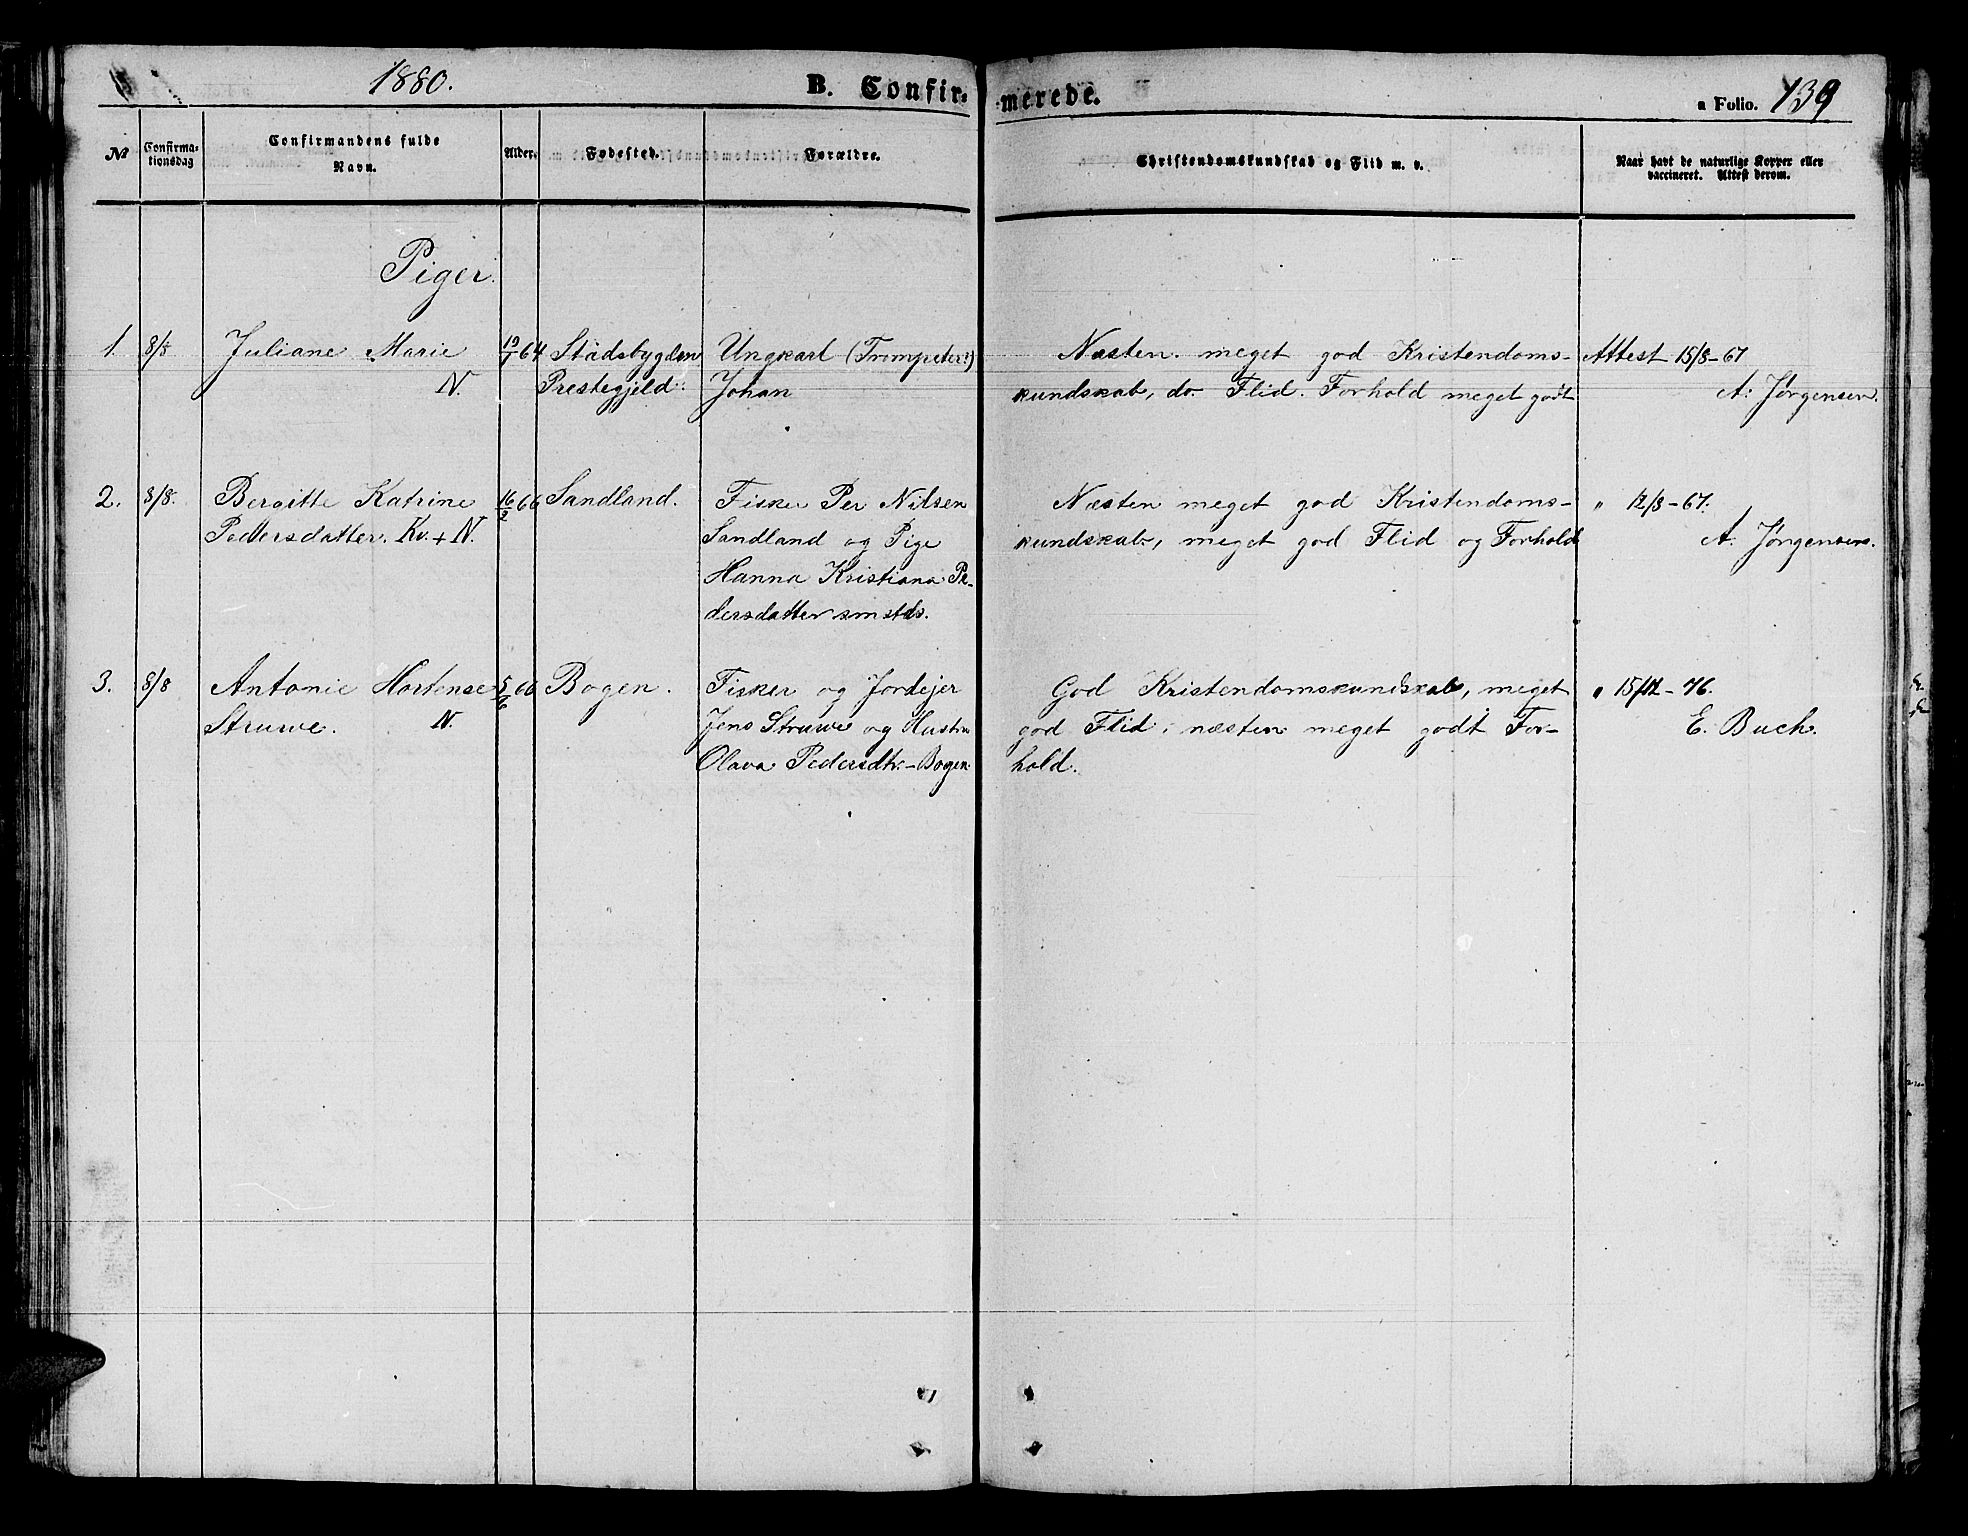 1880.
B. Confir-
merede.
a Folio. 139
№
Confirma-
tionsdag
Confirmandens fulde
Navn.
Alder.
Fødested.
Forældre.
Christendomskundskab og Flid m. v.
Naar havt de naturlige Kopper eller
vaccineret. Attest derom.
Piger.
1. 8/8 Juliane Marie 19/1 64 Stadsbygden Ungkarl (Trompeter?) Næsten meget god Kristendoms- Attest 15/8-67
N. Prestegjeld. Johan kundskab, do. Flid. Forhold meget godt A. Jørgensen.
2. 8/8. Bergitte Katrine 16/2 66 Sandland. Fisker Per Nilsen Næsten meget god Kristendoms- " 12/8-67.
Pedersdatter. Kv. + N. Sandland og Pige kundskab, meget god Flid og Forhold A. Jørgensen.
Hanna Kristiana Pe-
dersdatter smstds.
3. 8/8 Antonie Hortense 5/6 66 Bogen. Fisker og Jordejer God Kristendomskundskab, meget " 15/12-76.
Struwe. N. Jens Struwe og Hustru god Flid, næsten meget godt For- E. Buch.
Olava Pedersdtr.-Bogen. hold.